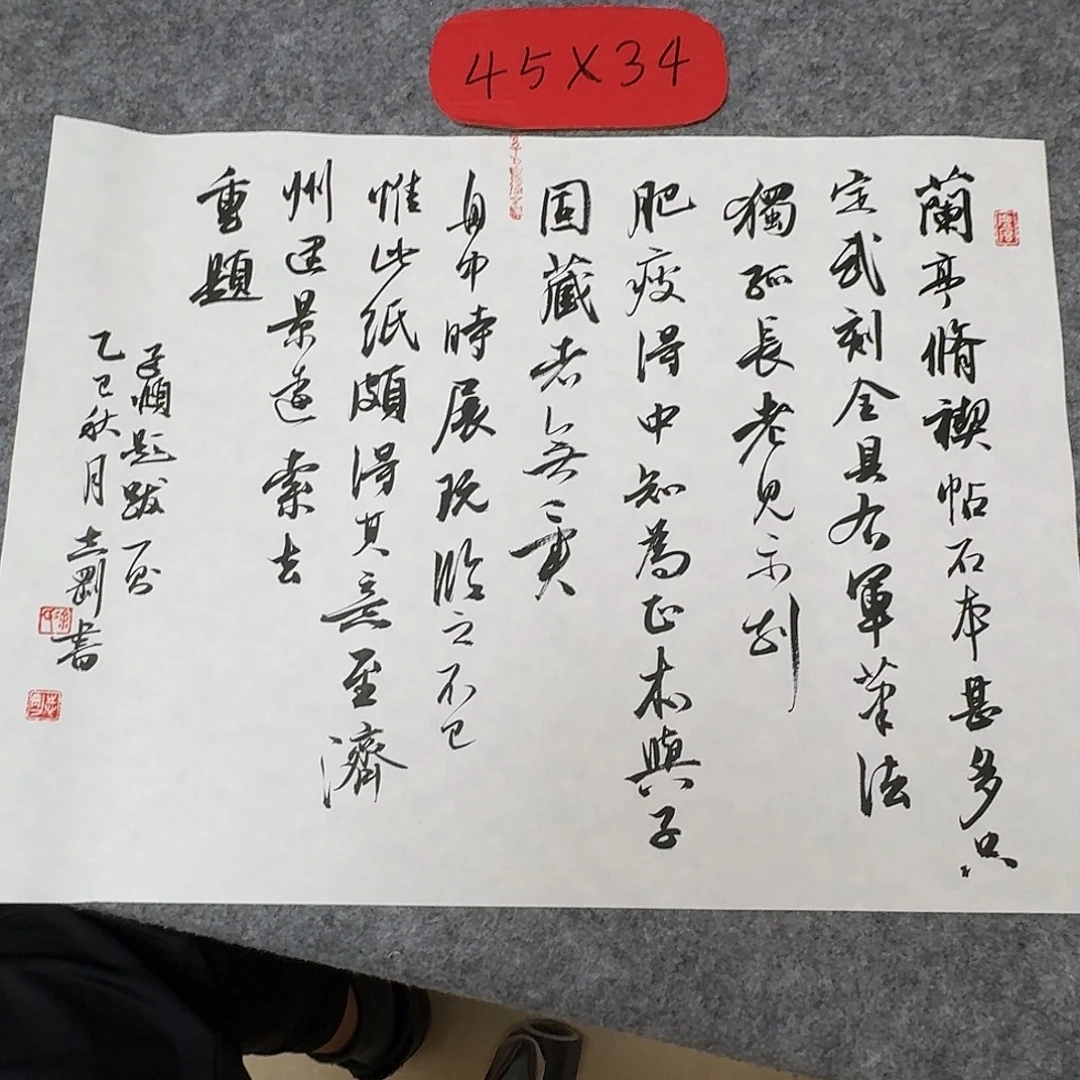 45X34
蘭亭脩禊帖石本甚多只
定武刻全具右軍筆法
獨孤長老見示刻
肥瘦得中知為正本與子
固藏者無異
舟中時展玩臨之不已
惟此紙頗得其意至濟
州 景遠索去
重題
題跋一則
乙巳秋月志剛書